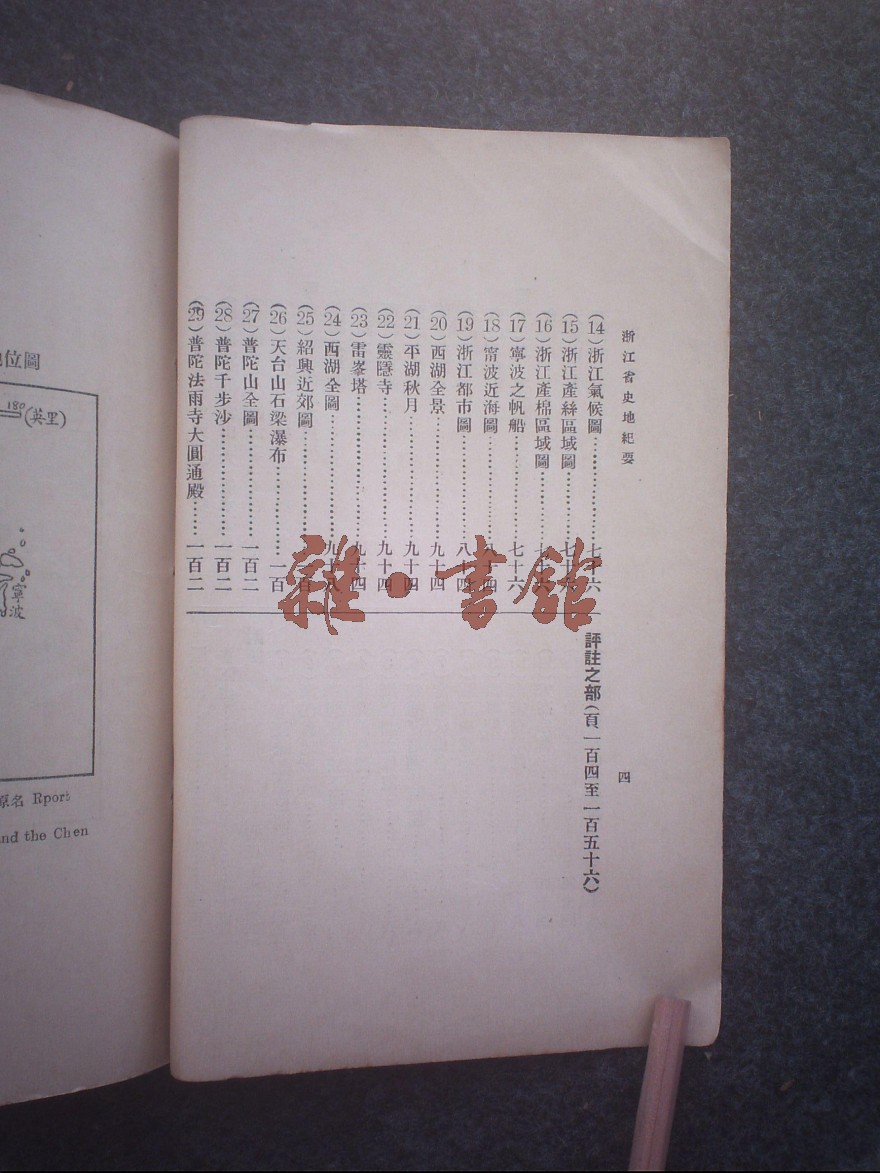 浙江省史地紀要
四
(14)浙江氣候圖………………七十六
(15)浙江產絲區域圖…………七十六
(16)浙江產棉區域圖…………七十六
(17)寧波之帆船………………七十六
(18)甯波近海圖………………八十四
(19)浙江都市圖………………八十四
(20)西湖全景…………………九十四
(21)平湖秋月…………………九十四
(22)靈隱寺……………………九十四
(23)雷峯塔……………………九十四
(24)西湖全圖…………………九十八
(25)紹興近郊圖………………一百
(26)天台山石梁瀑布…………一百
(27)普陀山全圖………………一百二
(28)普陀千步沙………………一百二
(29)普陀法雨寺大圓通殿……一百二
評註之部(頁一百四至一百五十六)
雜·書館
位圖
180(英里)
寧波
原名 Rport
nd the Chen